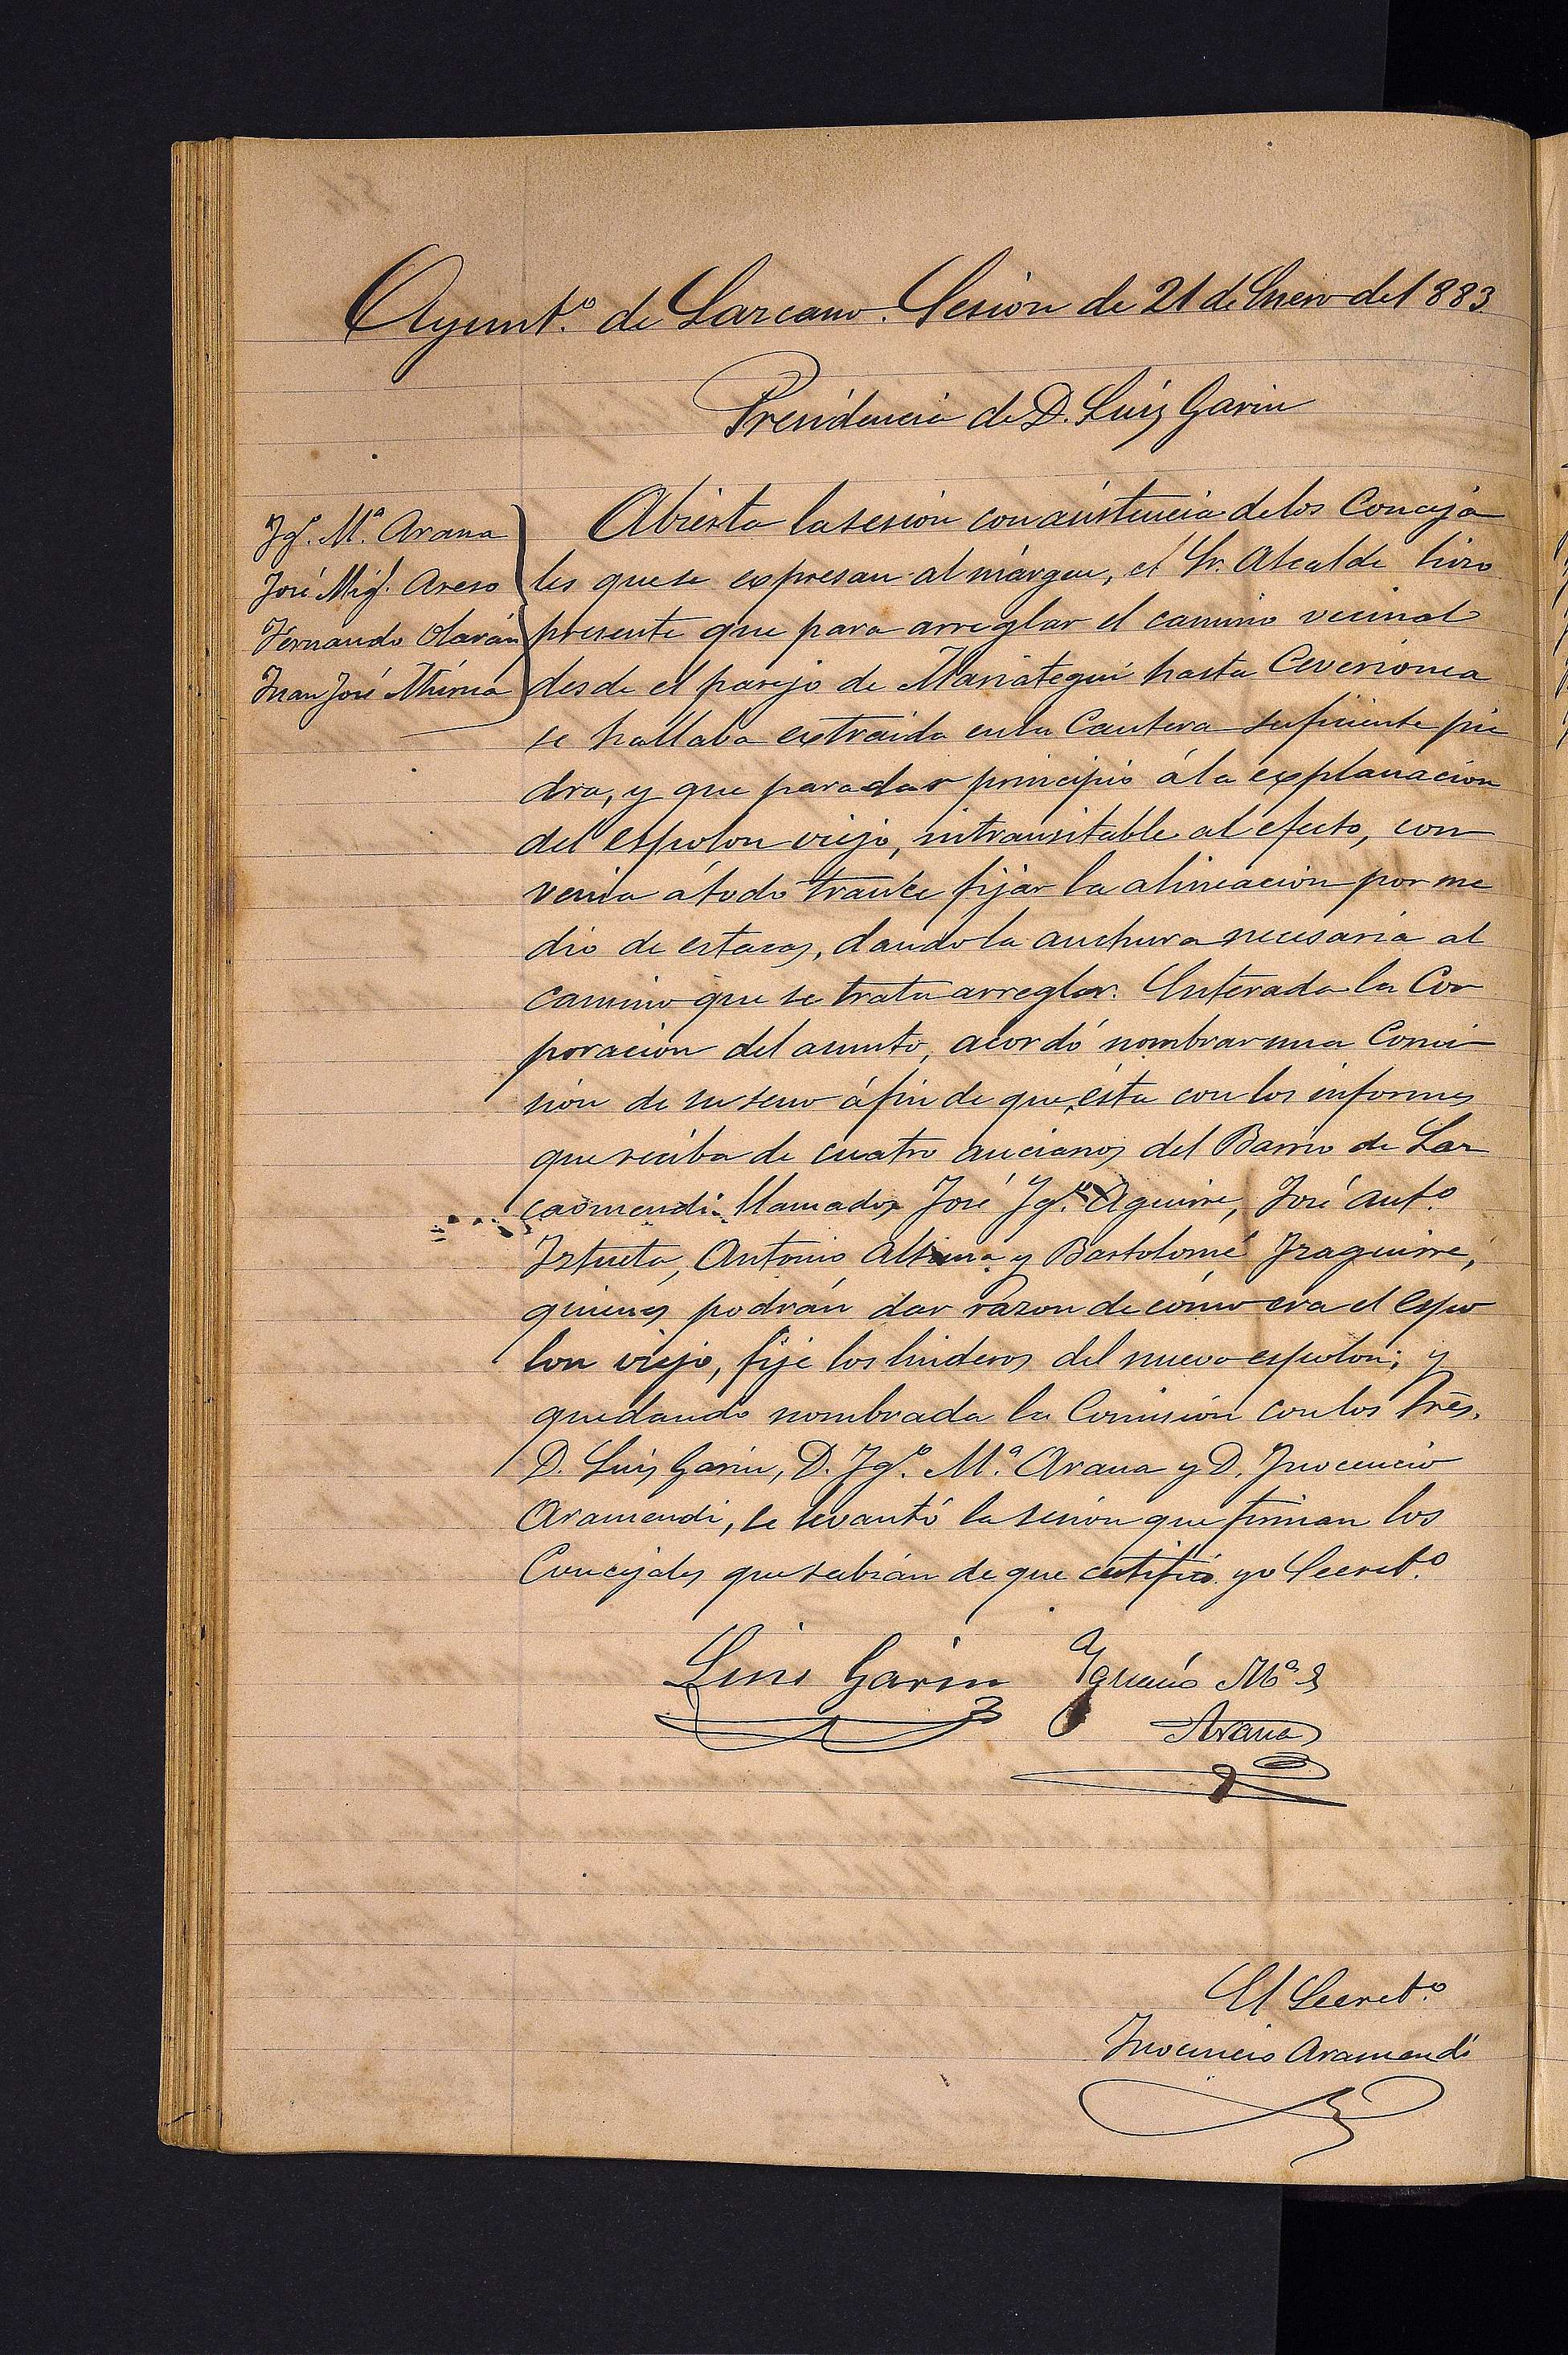 Ayunt.º de Lazcano. Sesión de 21 de Enero de 1883.
Presidencia de D. Luiz Garin
Ign.º M.ª Arana
José Mig.l Areso
Fernando Olarán
Juan José Múrua
Abierta la sesión con asistencia de los Conceja
les que se expresan al márgen, el Sr. Alcalde hizo
presente que para arreglar el camino vecinal
desde el parajo de Mariategui hasta
se hallaba extraida en la Cantera suficiente pie
dra, y que para dar principio á la explanación
del espolon viejo, intransitable al efecto, con
venia á todo trance fijar la alineación por me
dio de estacas, dando la anchura necesaria al
camino que se trata arreglar. Enterada la Cor
poración del asunto, acordó nombrar una Comi
sión de su seno á fin de que, ésta con los informes
que reciba de cuatro ancianos del Barrio de Laz
caomendi llamados José Ig.º Aguirre, José Ant.º
Iztueta, Antonio Altuna y Bartolomé Izaguirre,
quienes podrán dar razon de cómo era el espo
lon viejo, fije los linderos del nuevo espolon; y
quedando nombrada la Comisión con los Sres.
D. Luiz Garin, D. Ig.º M.ª Arana y D. Inocencio
Aramendi, se levantó la sesión que firman los
Concejales que sabían de que certifico yo Secret.º
Luis Garin Ygnacio Mª
Arana
El Secret.º
Inocencio Aramendi